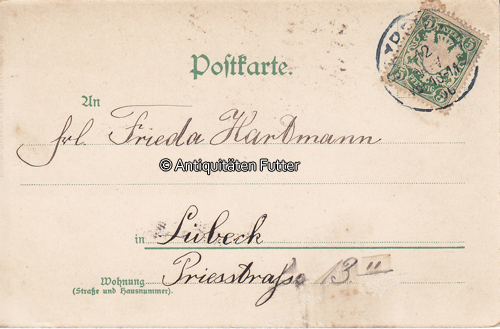 Postkarte.
An
frl. Frieda Hartmann
© Antiquitäten Futter
in Lübeck
Wohnung Priesstraße 13 II
(Straße und Hausnummer).